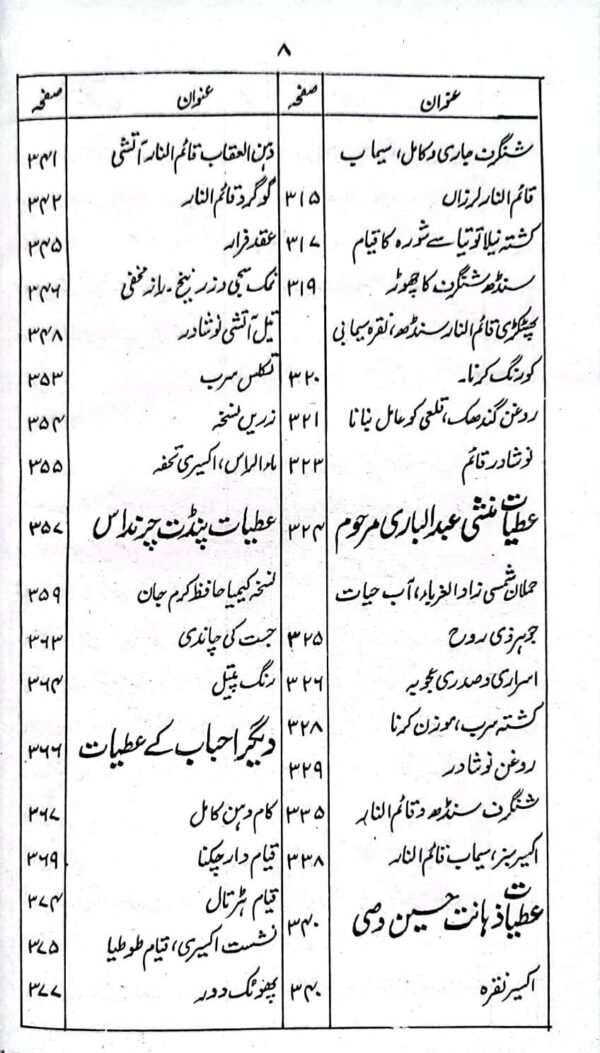 ۸
عنوان صفحہ
شنگرف جاری و کامل، سیماب
قائم النار لرزاں ۳۱۵
کشتہ نیلا توتیا سے شورہ کا قیام ۳۱۷
سنڈھ شنگرف کا چھوڑ ۳۱۹
پھٹکڑی قائم النار سنڈھ، نقرہ سیمابی
کو رنگ کرنا۔ ۳۲۰
روغن گندھک، قلعی کو عامل بنانا ۳۲۱
نوشادر قائم ۳۲۳
عطیات منشی عبدالباری مرحوم ۳۲۴
حملان شمسی زاد الغرباء، آب حیات
جوہر ذی روح ۳۲۵
اسراری و صدری مجوبہ ۳۲۶
کشتہ سرب، موزن کرنا ۳۲۸
روغن نوشادر ۳۲۹
شنگرف سنڈھ و قائم النار ۳۳۵
اکسیر سبز، سیماب قائم النار ۳۳۸
عطیات ذہانت حسین وصی ۳۴۰
اکسیر نقرہ ۳۴۰
عنوان صفحہ
دہن العقاب قائم النار آتشی ۳۴۱
گوگرد قائم النار ۳۴۲
عقد فرار ۳۴۵
نمک سجی و زرنیخ، راز مخفی ۳۴۶
تیل آتشی نوشادر ۳۴۸
تکلس سرب ۳۵۳
زریں نسخہ ۳۵۴
ماء الراس، اکسیری تحفہ ۳۵۵
عطیات پنڈت چرنداس ۳۵۷
نسخہ کیمیا حافظ کرم جان ۳۵۹
جست کی چاندی ۳۶۳
رنگ پیتل ۳۶۴
دیگر احباب کے عطیات ۳۶۶
کام دہن کامل ۳۶۷
قیام دار چکنا ۳۶۹
قیام ہڑتال ۳۷۴
نشست اکسیری، قیام طوطیا ۳۷۵
پھوٹک دور ۳۷۷